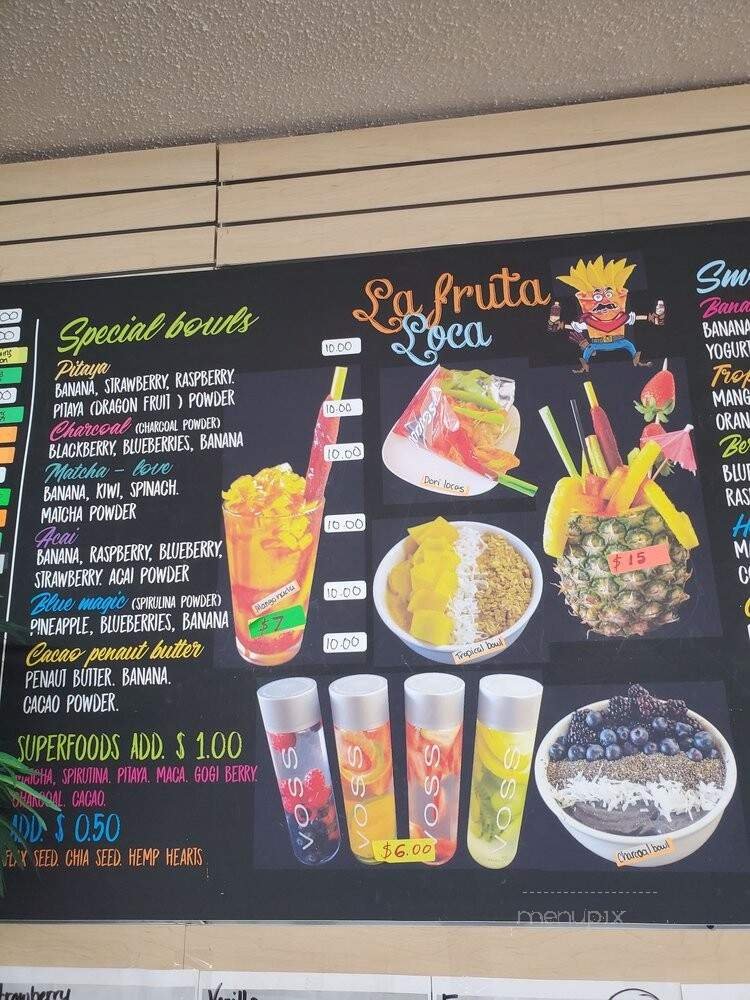 Special bowls
Pitaya
BANANA, STRAWBERRY, RASPBERRY.
PITAYA (DRAGON FRUIT ) POWDER
10.00
Charcoal (CHARCOAL POWDER)
BLACKBERRY, BLUEBERRIES, BANANA
10.00
Matcha - love
BANANA, KIWI, SPINACH.
MATCHA POWDER
10.00
Acai
BANANA, RASPBERRY, BLUEBERRY,
STRAWBERRY. ACAI POWDER
10.00
Blue magic (SPIRULINA POWDER)
PINEAPPLE, BLUEBERRIES, BANANA
10.00
Cacao penaut butter
PENAUT BUTTER. BANANA.
CACAO POWDER.
10.00
SUPERFOODS ADD. $ 1.00
MATCHA, SPIRUTINA, PITAYA. MACA. GOGI BERRY.
CHARCOAL. CACAO.
ADD. $ 0.50
FLAX SEED. CHIA SEED. HEMP HEARTS
La fruta
Loca
Dori locos
$7
Tropical bowl
$15
VOSS
VOSS
VOSS
VOSS
$6.00
Charcoal bowl
BANANA
YOGURT
menupix
Vanilla